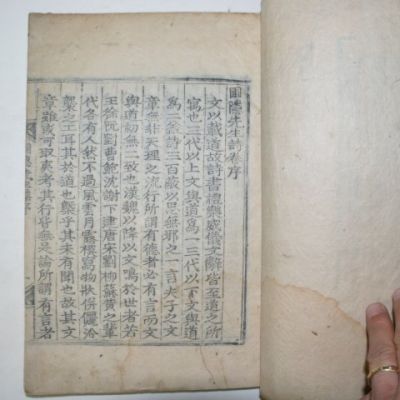 圃隱先生詩卷序
文以載道故詩書禮樂威儀文辭皆至道之所
寓也三代以上文與道爲一三代以下文與道
爲二盖詩三百蔽以思無邪之一言夫子之文
章無非天理之流行所謂有德者必有言而文
與道初無二致也漢魏以降以文鳴於世者若
王徐阮劉曹鮑沈謝下逮唐宋劉柳蘇黃之輩
代各有人然不過風雲月露模寫物狀俳儷沿
襲之工耳其於道也槩乎其未有聞也故其文
章雖或可取夷考其行皆無足論所謂有言者